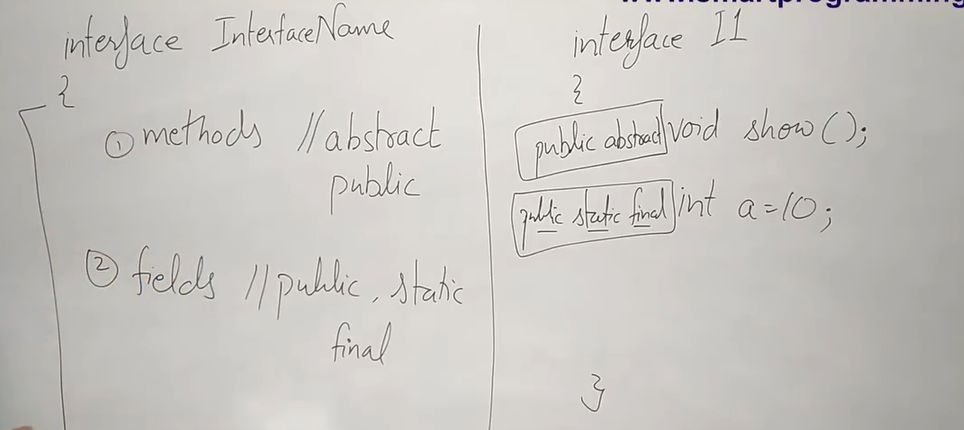 interface InterfaceName
{
① methods //abstract
public
② fields //public, static
final
interface I1
{
public abstract void show();
public static final int a=10;
}